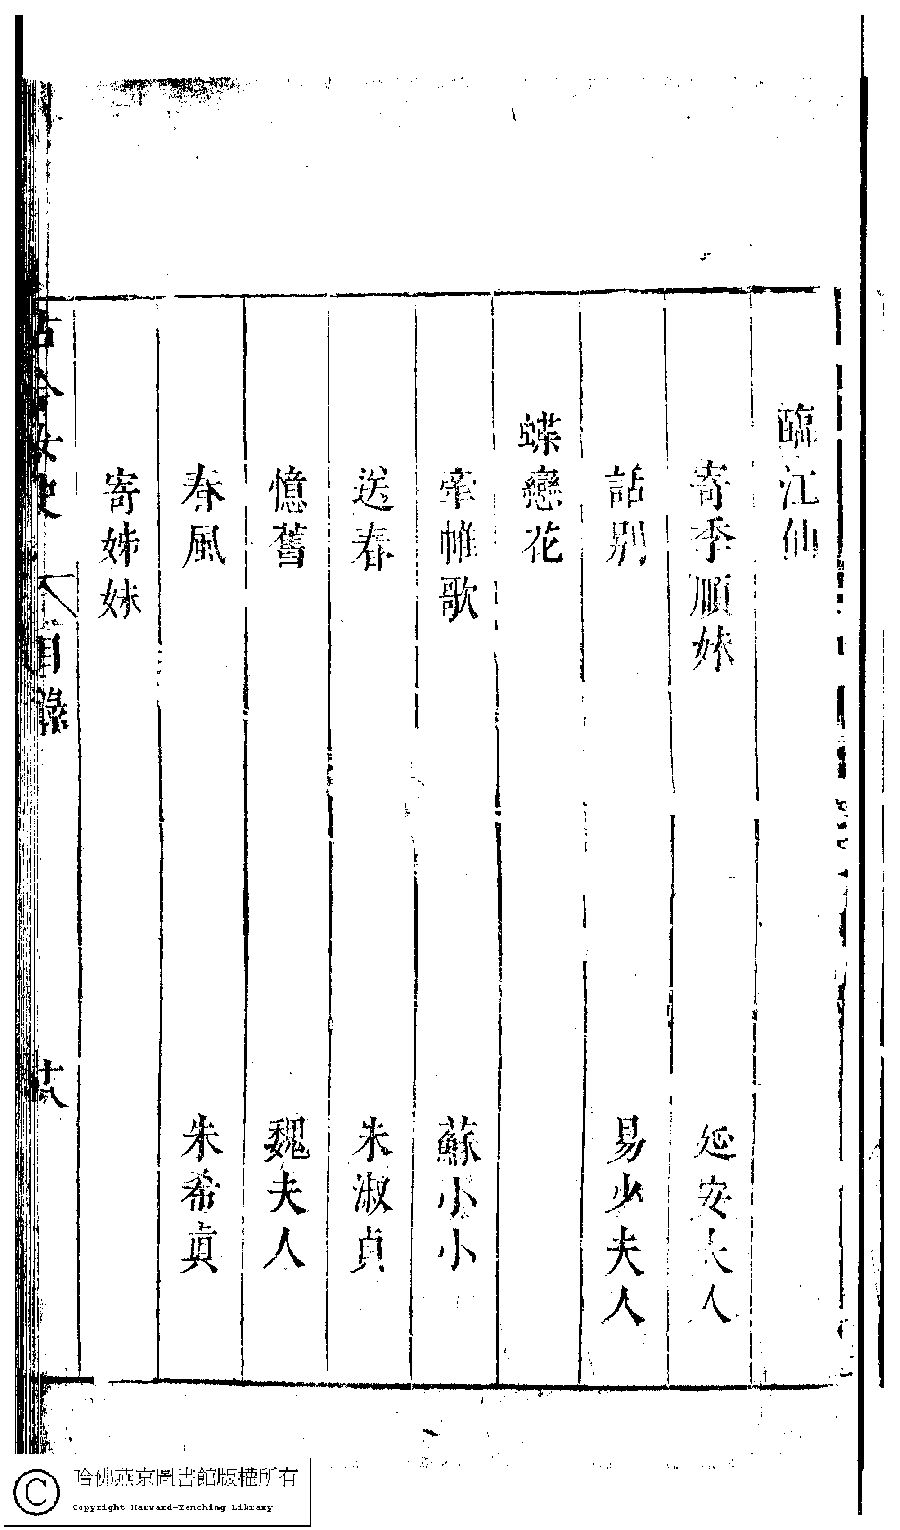 臨江仙
寄季順妹 延安夫人
話別 易少夫人
蝶戀花
牽帷歌 蘇小小
送春 朱淑貞
憶舊 魏夫人
春風 朱希眞
寄姊妹
古今女史 目錄 十八
哈佛燕京圖書館版權所有
Copyright Harvard-Yenching Library